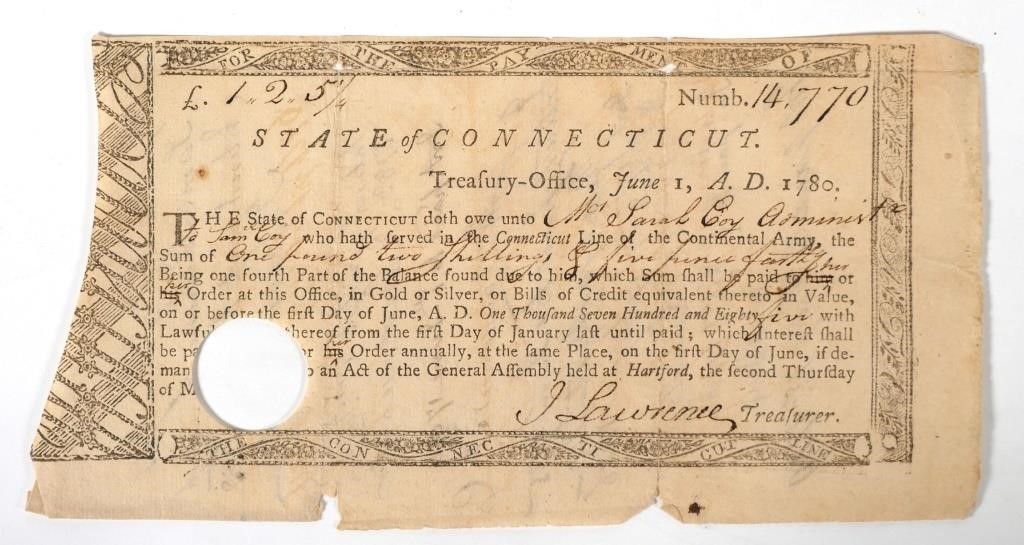 FOR THE PAY MEN OF
£. 1 " 2 " 5 1/4 Numb. 14,770
STATE of CONNECTICUT.
Treasury-Office, June 1, A. D. 1780.
THE State of CONNECTICUT doth owe unto Mrs Sarah Coy Administrx
to Saml Coy who hath ſerved in the Connecticut Line of the Continental Army, the
Sum of One pound two Shillings & five pence farthg
Being one fourth Part of the Balance found due to him, which Sum ſhall be paid to him her or
his her Order at this Office, in Gold or Silver, or Bills of Credit equivalent thereto in Value,
on or before the firſt Day of June, A. D. One Thouſand Seven Hundred and Eighty five with
Lawful thereof from the firſt Day of January laſt until paid; which Intereſt ſhall
be pa or his her Order annually, at the ſame Place, on the firſt Day of June, if de-
man to an Act of the General Aſſembly held at Hartford, the ſecond Thurſday
of M
J Lawrence Treaſurer.
THE CON NEC TI CUT LINE